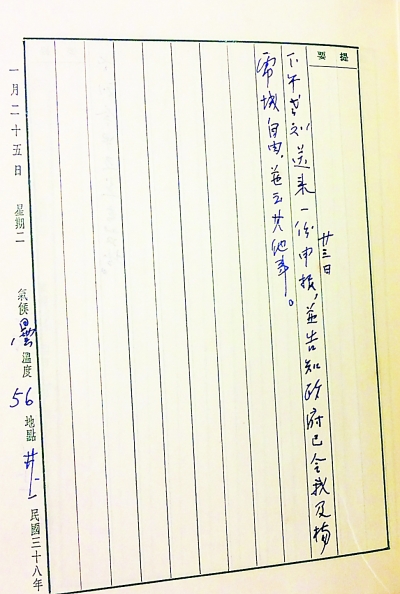 提要
廿三日
下午老刘送来一份申报，並告知政府已令我及楊
虎城自由，並云其他事。
一月二十五日 星期二 氣候 曇 溫度 56 地點 井上 民國三十八年